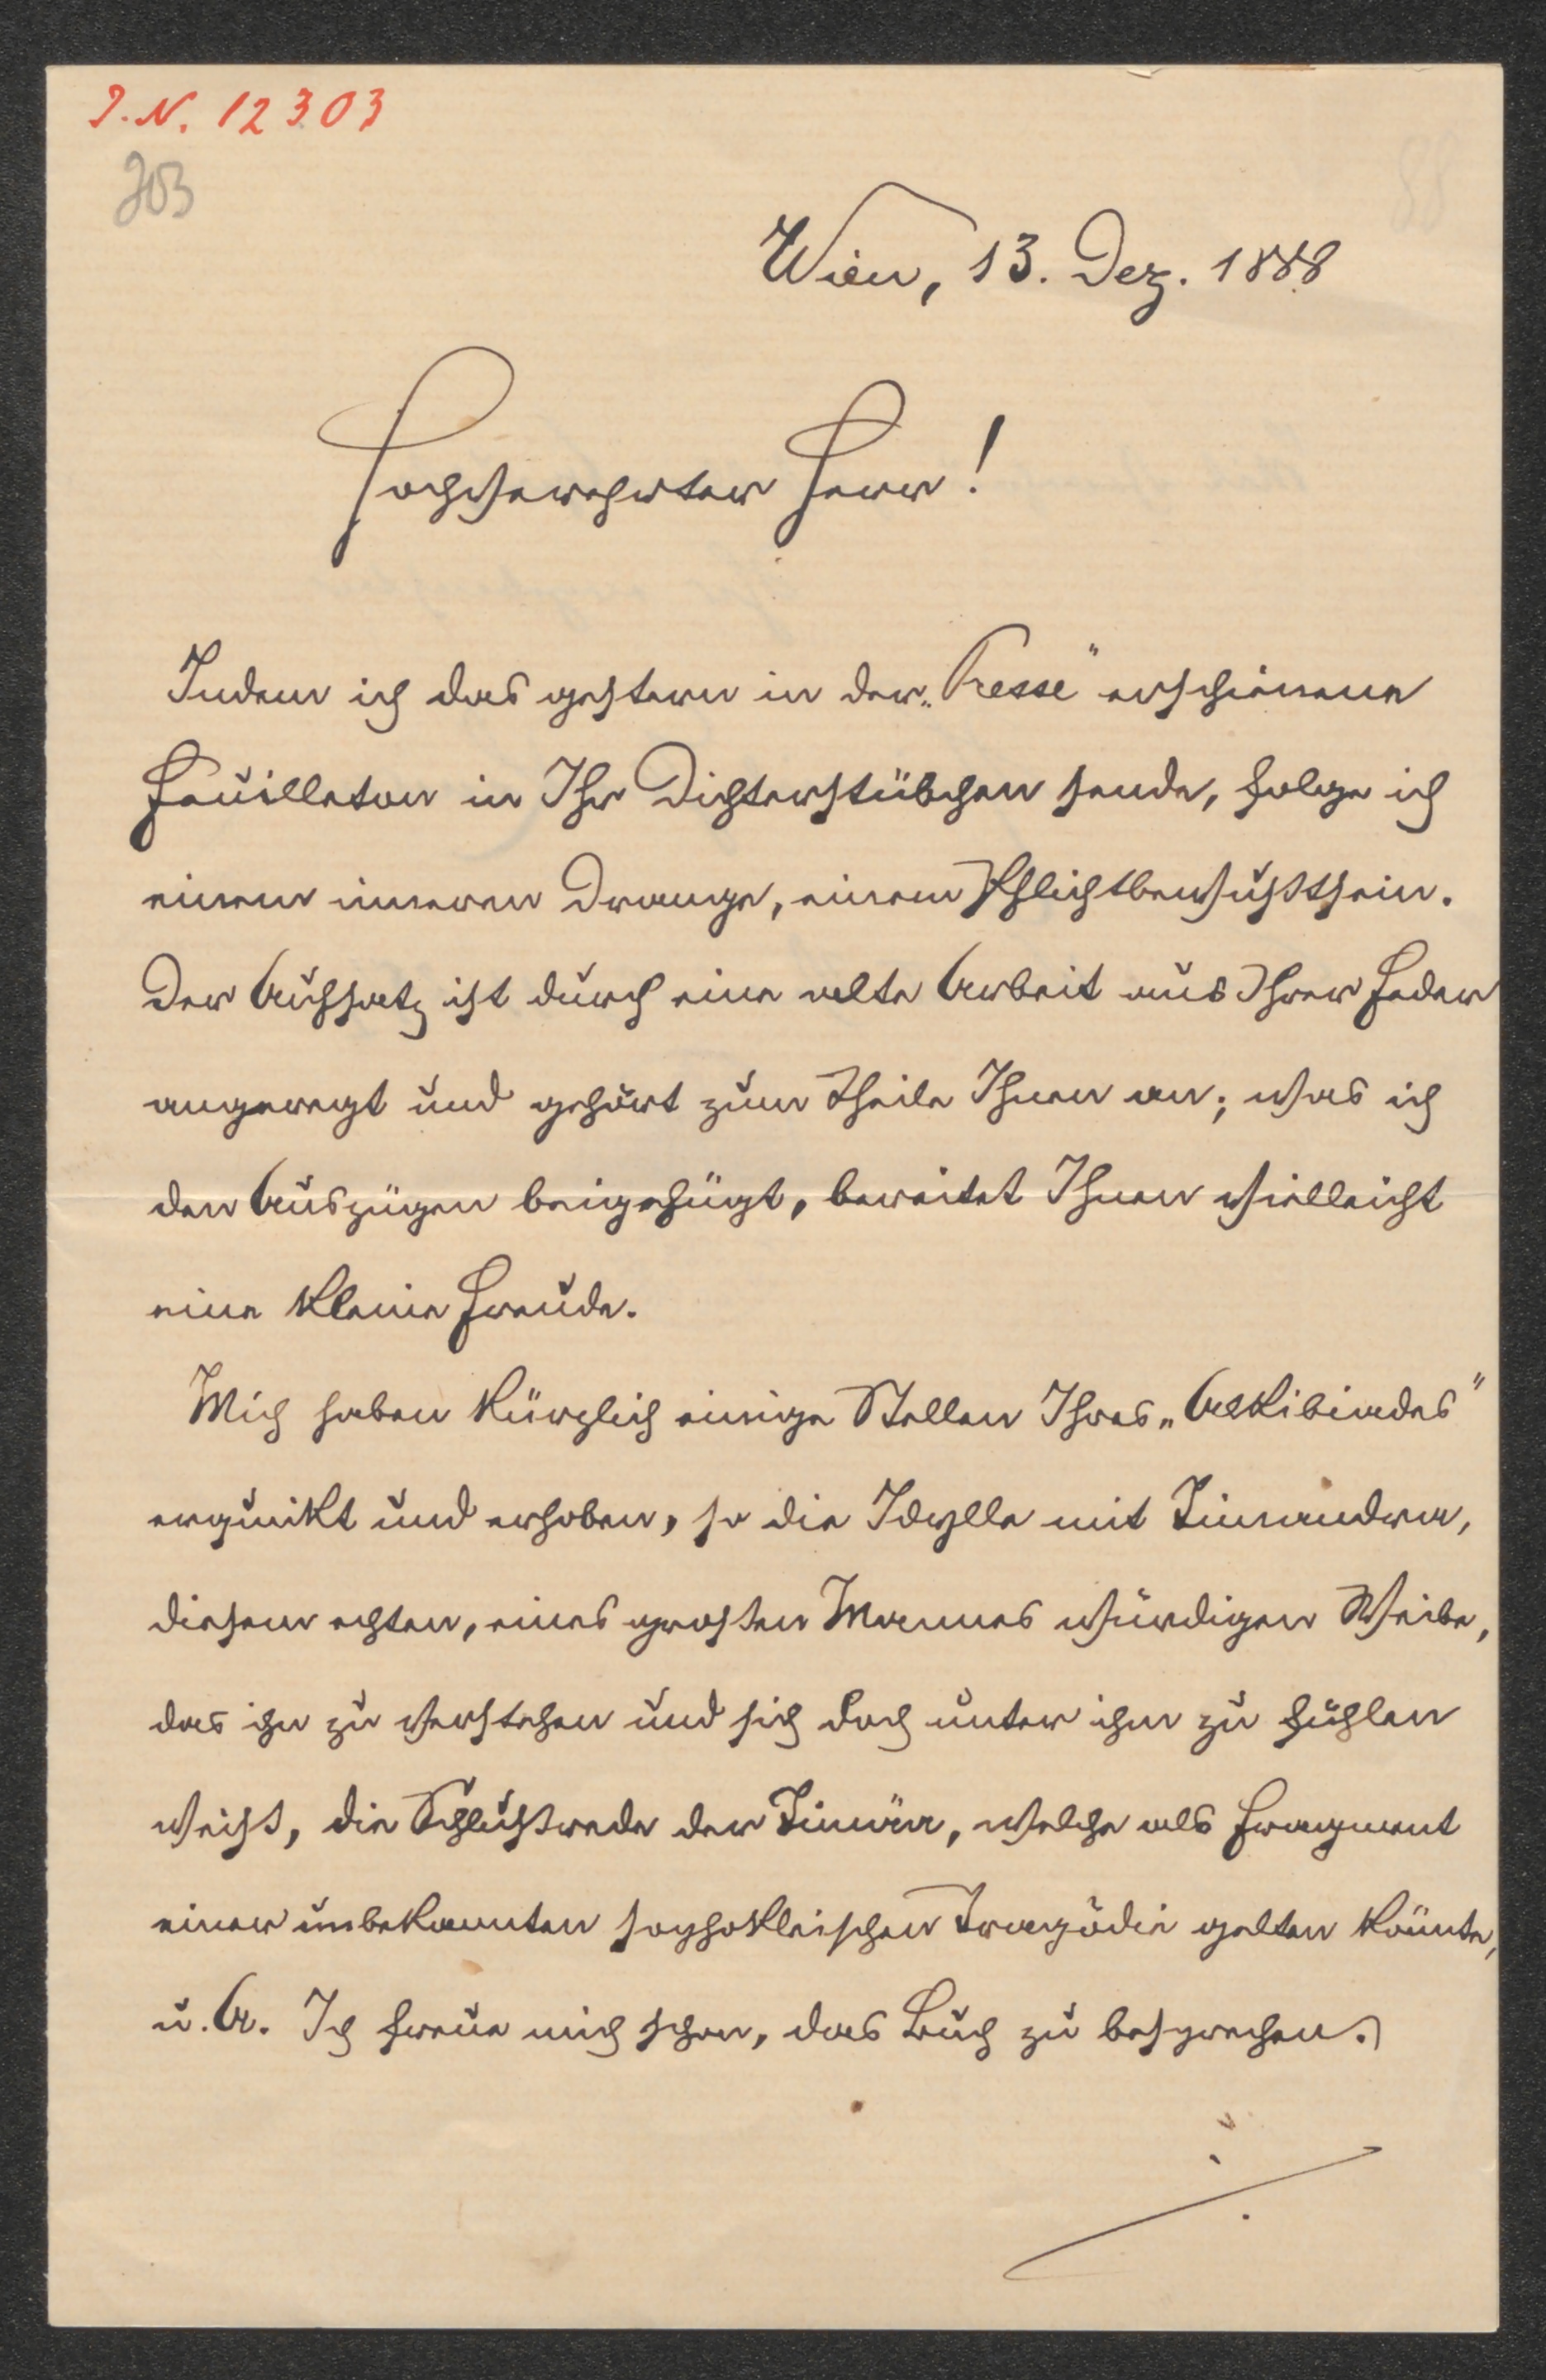 I.N. 12303
203
88
Wien, 13. Dez. 1888
Hochverehrter Herr!
Indem ich das gestern in der „Presse“ erschienene
Feuilleton in Ihr Dichterstübchen sende, folge ich
einem inneren Drange, einem Pflichtbewußtsein.
Der Aufsatz ist durch eine alte Arbeit aus Ihrer Feder
angeregt und gehört zum Theile Ihnen an; was ich
den Auszügen beigefügt, bereitet Ihnen vielleicht
eine kleine Freude.
Mich haben kürzlich einige Stellen Ihres „Alkibiades“
erquikt und erhoben, so die Idylle mit Timandra,
diesem echten, eines großen Mannes würdigen Weibe,
das ihn zu verstehen und sich doch unter ihm zu fühlen
weiß, die Schlußrede der Timäa, welche als Fragment
einer unbekannten sophokleischen Tragödie gelten könnte,
u. A. Ich freue mich schon, das Buch zu besprechen.